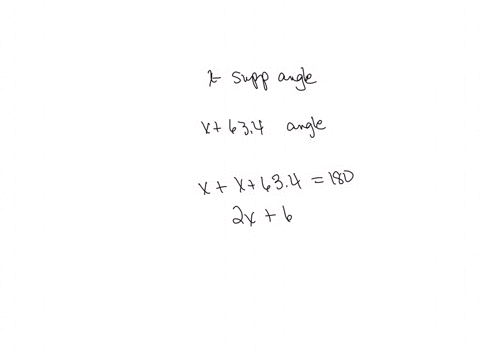 x= supp angle
x+63.4 angle
x + x+63.4 = 180
2x + 6